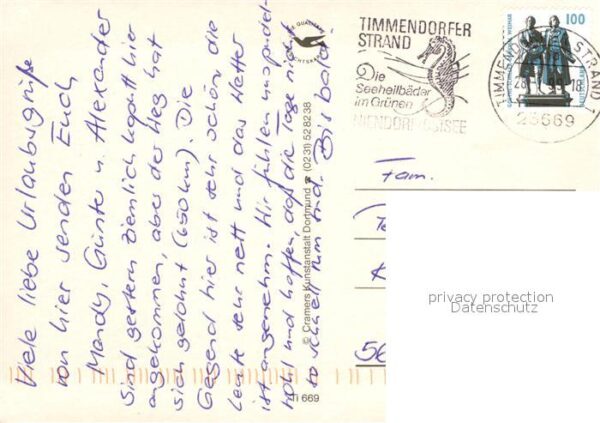 Viele liebe Urlaubsgrüße
von hier senden Euch
Mandy, Günter u. Alexander
Sind gestern ziemlich kaputt hier
angekommen, aber der Weg hat
sich gelohnt (650 km). Die
Gegend hier ist sehr schön, die
Leute sehr nett und das Wetter
ist angenehm. Wir fühlen uns
wohl und hoffen, daß die Tage nicht
so schnell rum sind. Bis bald!
© Cramers Kunstanstalt Dortmund (0231) 528238
Ti 669
TIMMENDORFER
STRAND
Die
Seeheilbäder
im Grünen
NIENDORF/OSTSEE
TIMMENDORFER STRAND 1
18
23669
100
Fam.
privacy protection
Datenschutz